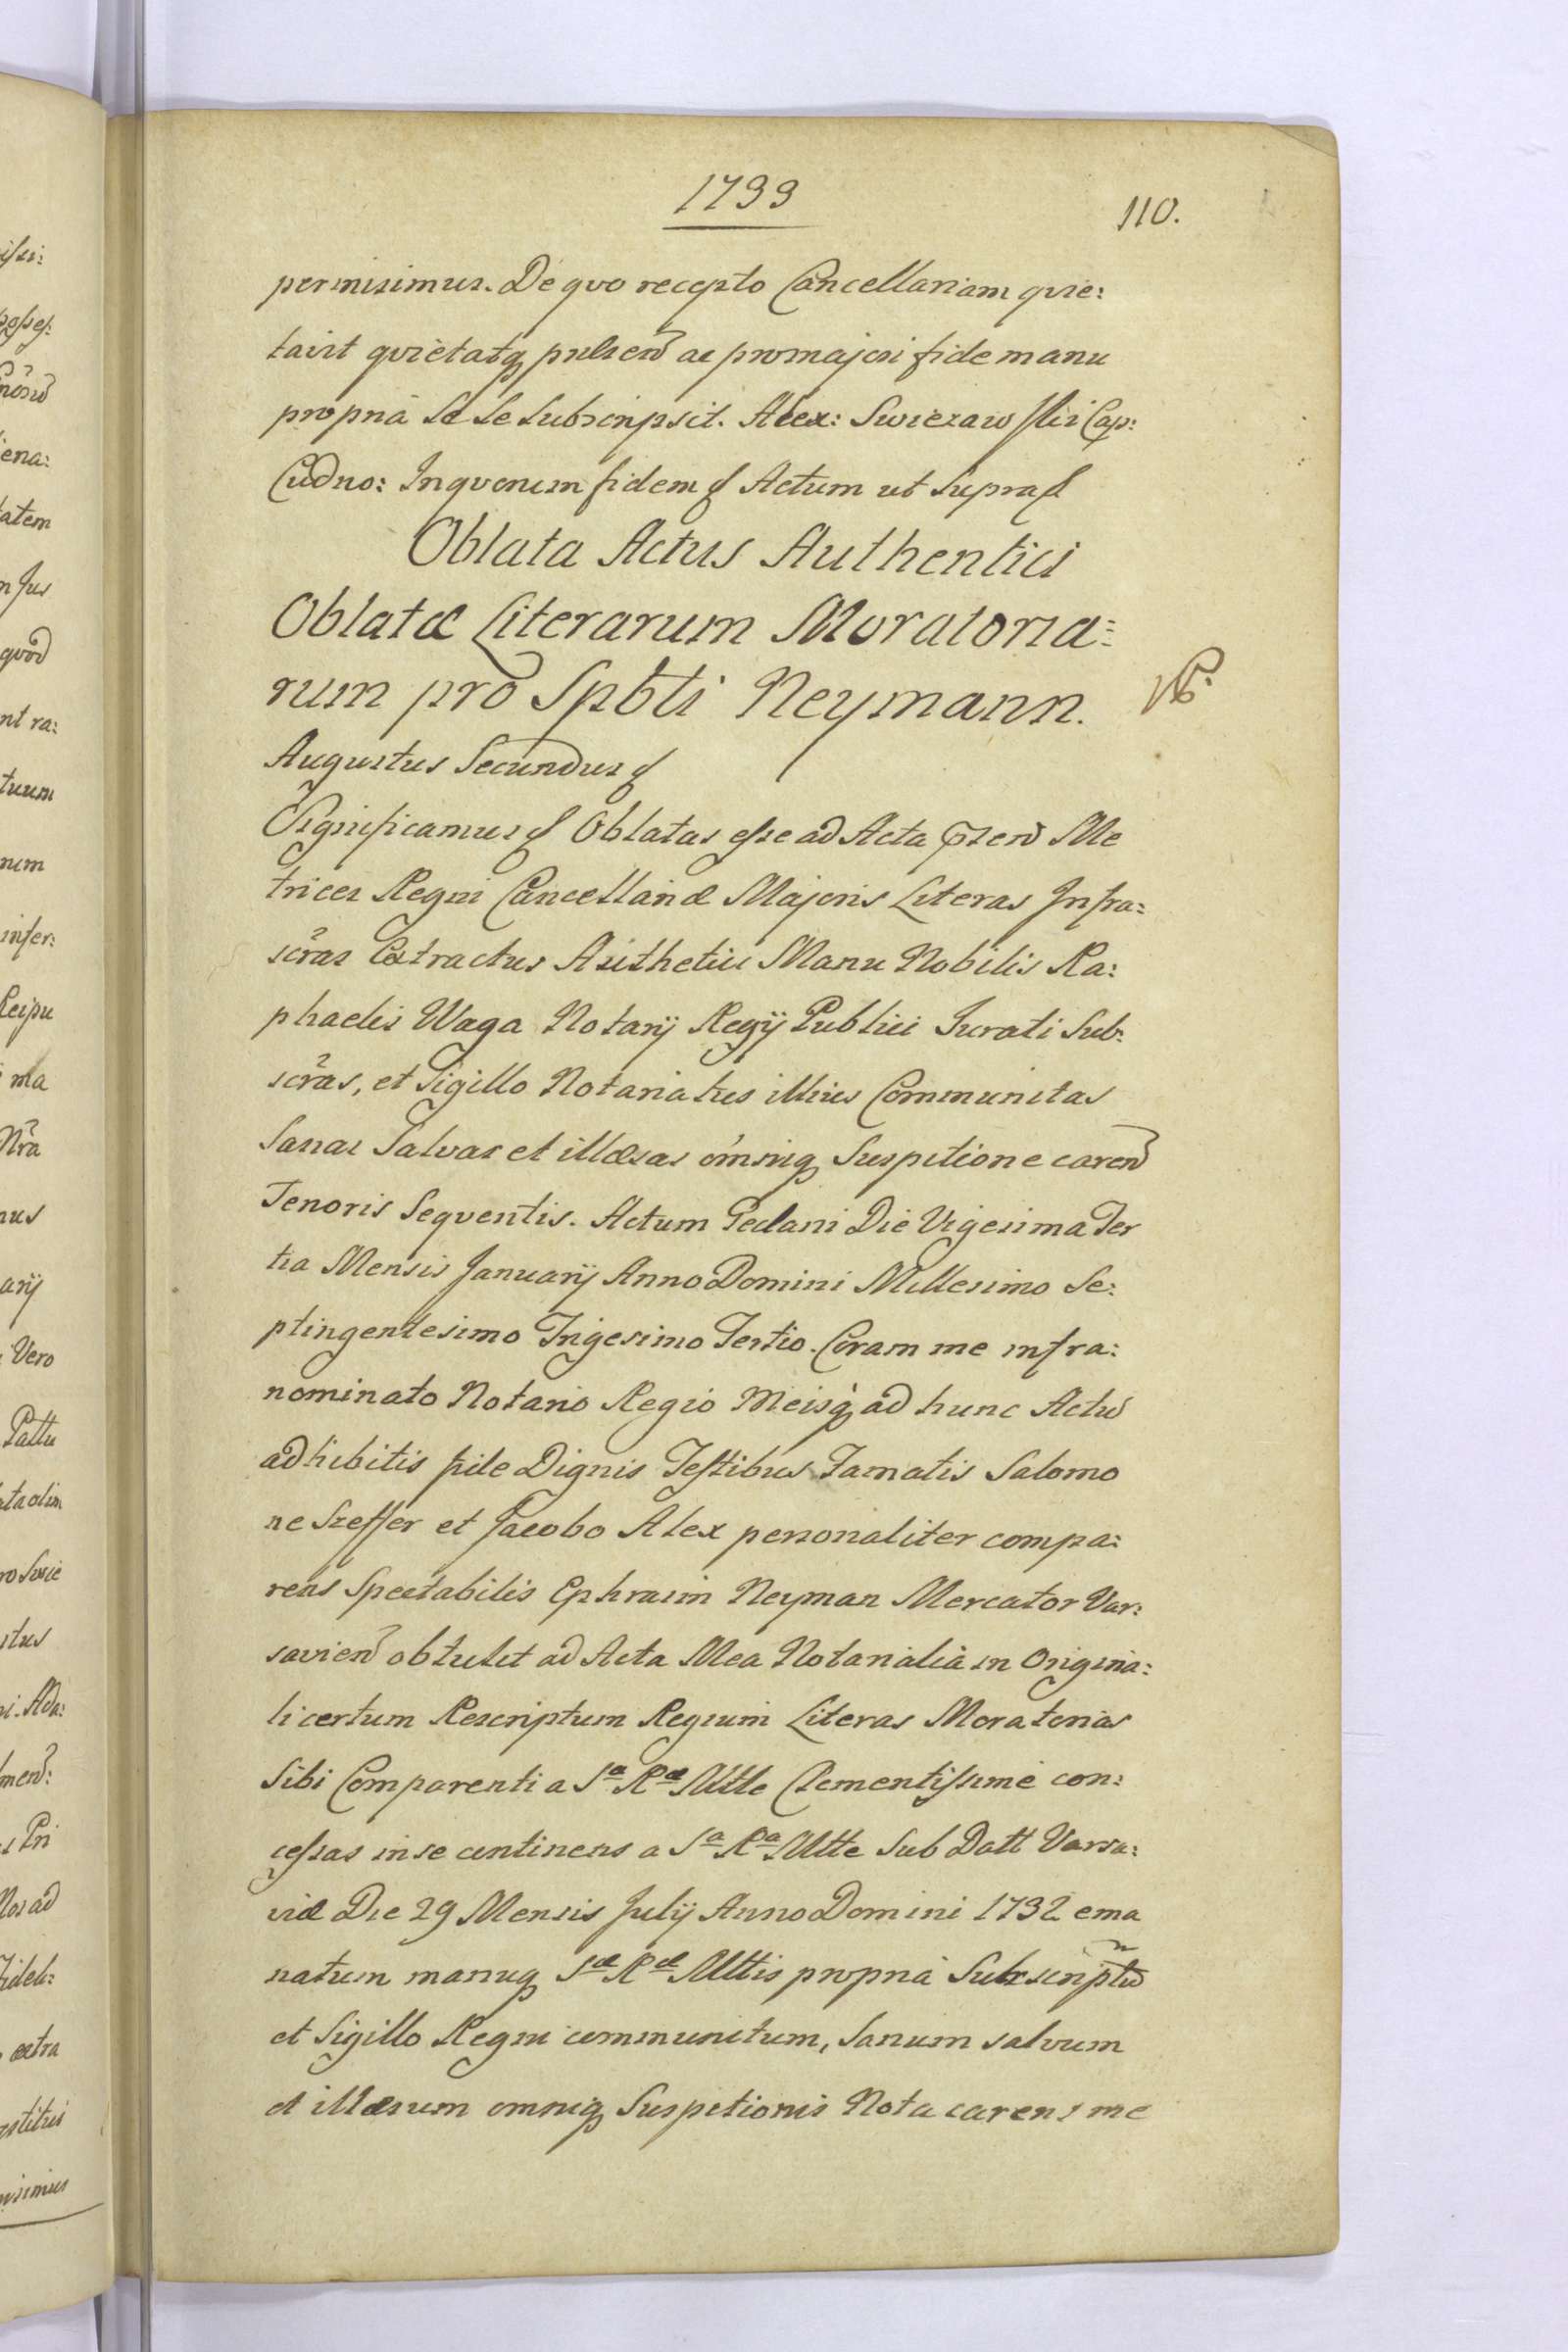 1733
110.
permisimus. De quo recepto Cancellariam quie:
tavit quietatq prṡen̄ ac pro majori fide manu
propria Se Se Subscripsit. Alex: Swiezawski Cap:
Cudno: In quorum fidem & Actum ut Supra &
Oblata Actus Authentici
Oblatæ Literarum Moratoria:
rum pro Spbli Neymann.
Augustus Secundus &
Significamus & Oblatas esse ad Acta p̄sen̄ Me
trices Regni Cancellariæ Majoris Literas Infra:
scr̃as Extractus Authetici Manu Nobilis Ra:
phaelis Waga Notarij Regij Publici Jurati Sub:
scr̃as, et Sigillo Notariatus illius Communitas
Sanas Salvas et illæsas omniq Suspitione caren̄
Tenoris Sequentis. Actum Gedani Die Vigesima Ter
tia Mensis January Anno Domini Millesimo Se:
ptingentesimo Trigesimo Tertio. Coram me infra:
nominato Notario Regio Meisq ad hunc Actū
adhibitis fide Dignis Testibus Famatis Salomo
ne Szeffer et Jacobo Alex personaliter compa:
rens Spectabilis Ephraim Neyman Mercator Var:
savien̄ obtulit ad Acta Mea Notarialia in Origina:
li certum Rescriptum Regium Literas Moratorias
Sibi Comparenti a Sa Ra Mtte Clementissime con:
cessas in se continens a Sa Ra Mtte Sub Datt Varsa:
viæ Die 29 Mensis July Anno Domini 1732 ema
natum manuq Sæ Ræ Mttis propria Subscriptū
et Sigillo Regni communitum, Sanum salvum
et illæsum omniq Suspitionis Nota carens me